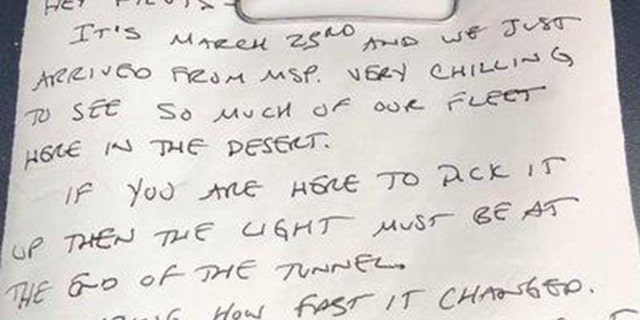 HEY PILOTS -
IT'S MARCH 23RD AND WE JUST
ARRIVED FROM MSP. VERY CHILLING
TO SEE SO MUCH OF OUR FLEET
HERE IN THE DESERT.
IF YOU ARE HERE TO PICK IT
UP THEN THE LIGHT MUST BE AT
THE END OF THE TUNNEL.
HOW FAST IT CHANGED.